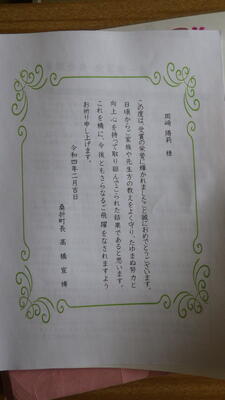 岡崎 陽莉 様
この度は、受賞の栄誉に輝かれましたこと誠におめでとうございます。
日頃からご家族や先生方の教えをよく守り、たゆまぬ努力と
向上心を持って取り組んでこられた結果であると思います。
これを機に、今後ともさらなるご飛躍をなされますよう
お祈り申し上げます。
令和四年二月吉日
桑折町長 高橋 宣博